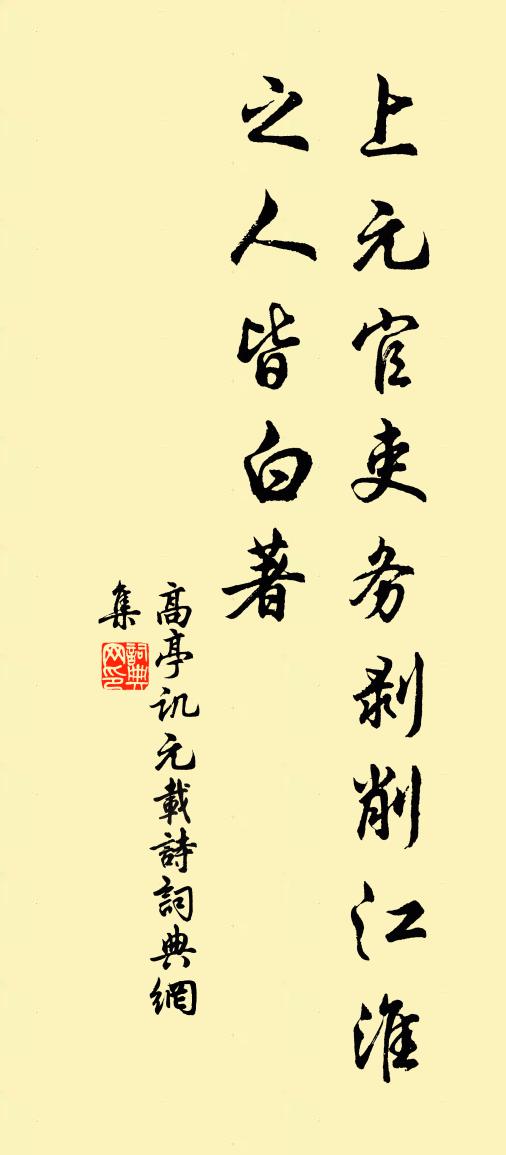 上元官吏务剥削江淮
之人皆白著
高亭讥元载詩詞典網
集
詞典网印